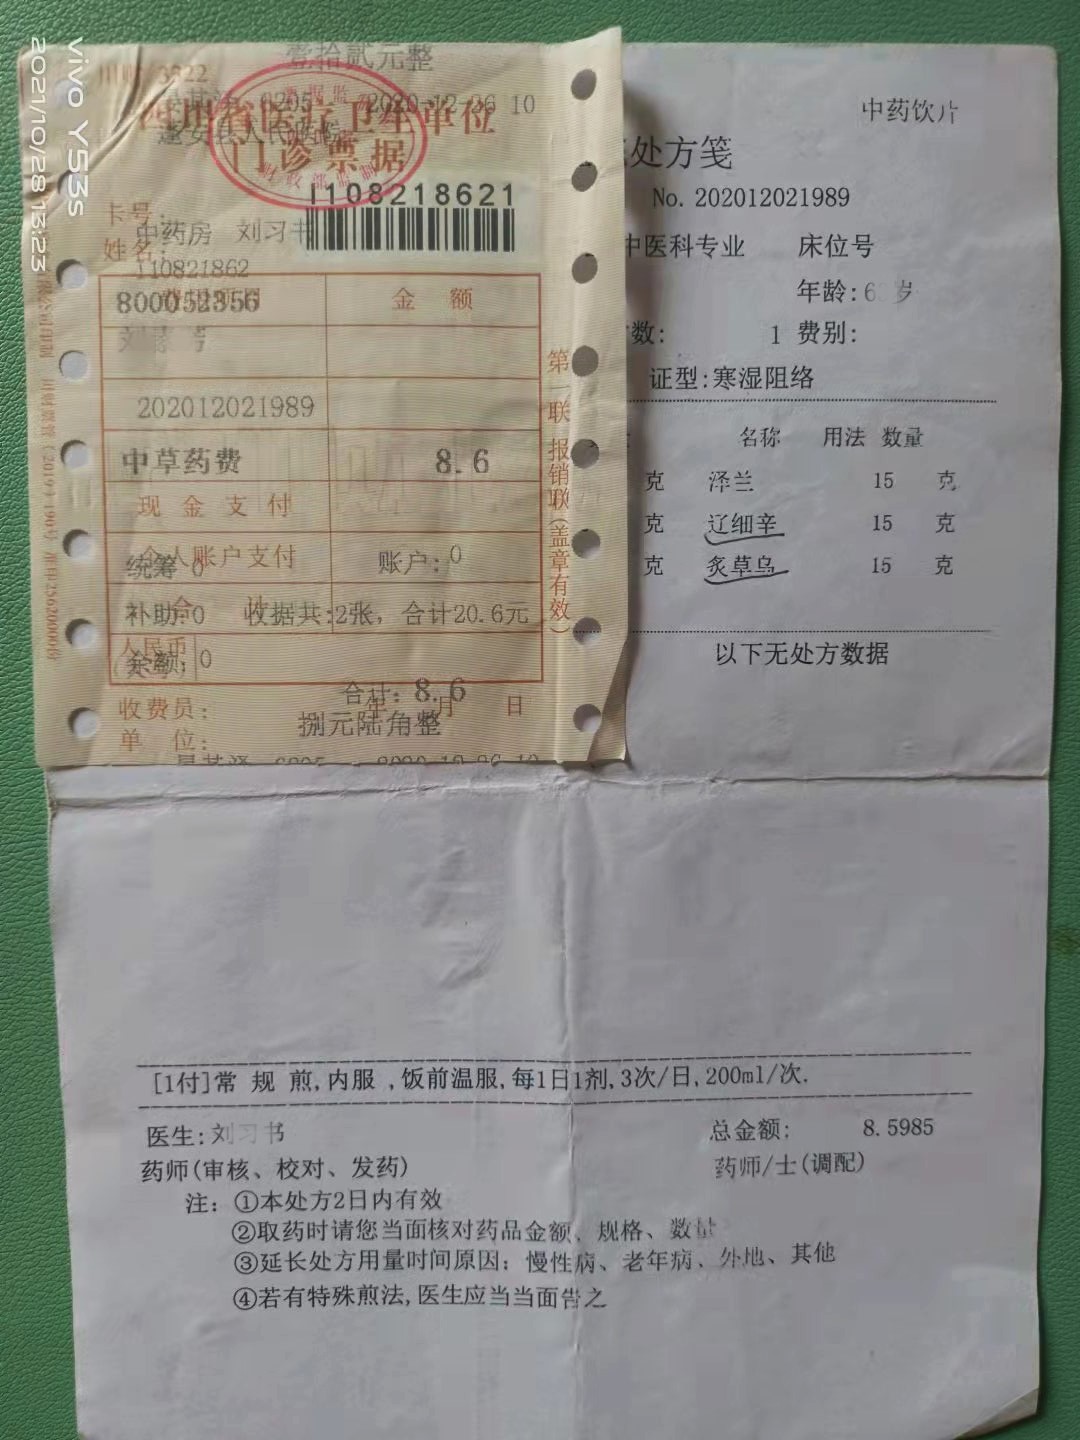 vivo Y53s
2021/10/28 13:23
壹拾贰元整
2020-12-26 10
四川省医疗卫生单位
门诊票据
1108218621
卡号:
中药房 刘习书
姓名:
110821862
800052356
金 额
202012021989
中草药费 8.6
现 金 支 付
个人账户支付
统筹 0 账户: 0
补助:0 收据共:2张, 合计20.6元
人民币
余额: 0
合计: 8.6
收费员: 年 月 日
捌元陆角整
单 位:
第一联 报销联(盖章有效)
中药饮片
处方笺
No. 202012021989
中医科专业 床位号
年龄:6 岁
数: 1 费别:
证型:寒湿阻络
名称 用法 数量
克 泽兰 15 克
克 辽细辛 15 克
克 炙草乌 15 克
以下无处方数据
[1付]常 规 煎,内服 ,饭前温服,每1日1剂,3次/日,200ml/次.
医生:刘习书 总金额: 8.5985
药师(审核、校对、发药) 药师/士(调配)
注: ①本处方2日内有效
②取药时请您当面核对药品金额、规格、数量
③延长处方用量时间原因: 慢性病、老年病、外地、其他
④若有特殊煎法,医生应当当面告之